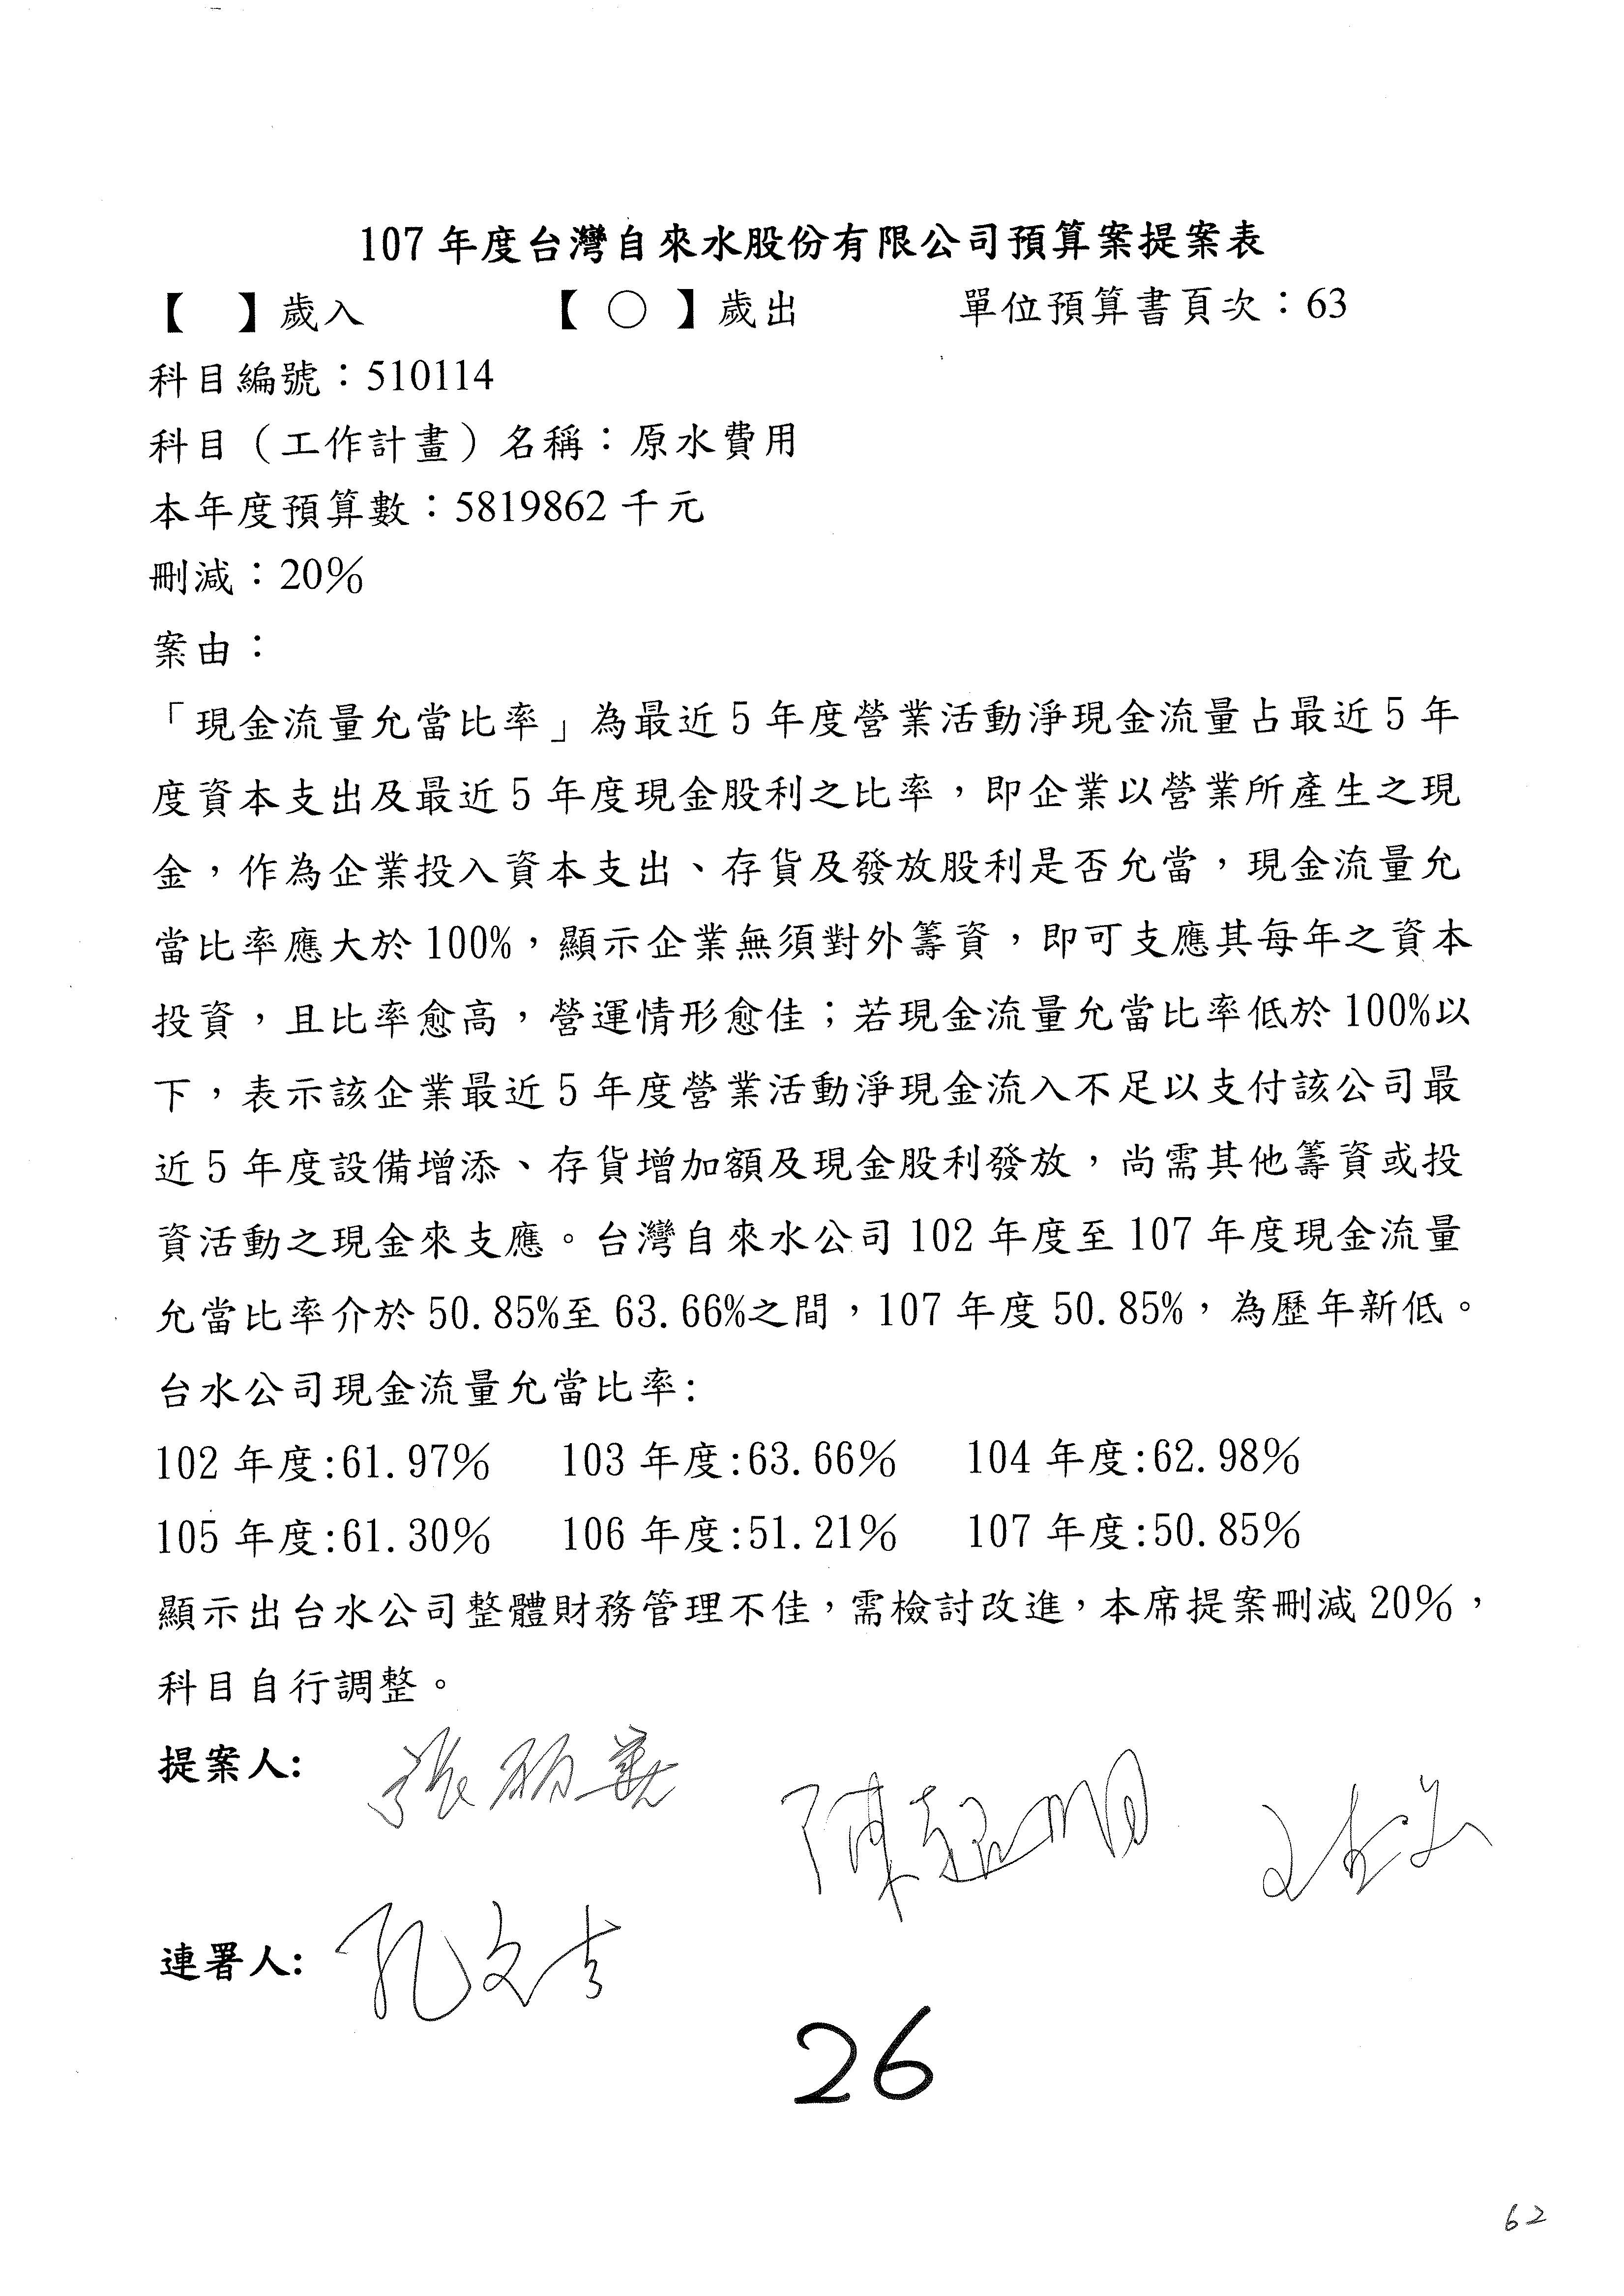 107 年度台灣自來水股份有限公司預算案提案表
【　】歲入　【 ○ 】歲出　單位預算書頁次：63
科目編號：510114
科目（工作計畫）名稱：原水費用
本年度預算數：5819862 千元
刪減：20%
案由：
「現金流量允當比率」為最近 5 年度營業活動淨現金流量占最近 5 年
度資本支出及最近 5 年度現金股利之比率，即企業以營業所產生之現
金，作為企業投入資本支出、存貨及發放股利是否允當，現金流量允
當比率應大於 100%，顯示企業無須對外籌資，即可支應其每年之資本
投資，且比率愈高，營運情形愈佳；若現金流量允當比率低於 100%以
下，表示該企業最近 5 年度營業活動淨現金流入不足以支付該公司最
近 5 年度設備增添、存貨增加額及現金股利發放，尚需其他籌資或投
資活動之現金來支應。台灣自來水公司 102 年度至 107 年度現金流量
允當比率介於 50.85%至 63.66%之間，107 年度 50.85%，為歷年新低。
台水公司現金流量允當比率:
102 年度:61.97%　103 年度:63.66%　104 年度:62.98%
105 年度:61.30%　106 年度:51.21%　107 年度:50.85%
顯示出台水公司整體財務管理不佳，需檢討改進，本席提案刪減 20%，
科目自行調整。
提案人: 張麗善 陳超明
連署人: 孔文吉
26
62